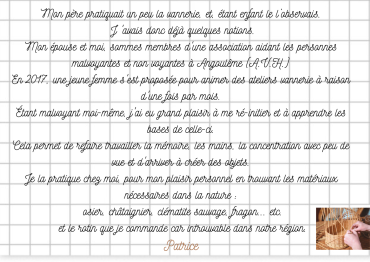 Mon père pratiquait un peu la vannerie, et, étant enfant je l'observais.
J'avais donc déjà quelques notions.
Mon épouse et moi, sommes membres d'une association aidant les personnes
malvoyantes et non voyantes à Angoulême (A.V.H.)
En 2017, une jeune femme s'est proposée pour animer des ateliers vannerie à raison
d'une fois par mois.
Étant malvoyant moi-même, j'ai eu grand plaisir à me ré-initier et à apprendre les
bases de celle-ci.
Cela permet de refaire travailler la mémoire, les mains, la concentration avec peu de
vue et d'arriver à créer des objets.
Je la pratique chez moi, pour mon plaisir personnel en trouvant les matériaux
nécessaires dans la nature :
osier, châtaignier, clématite sauvage, fragon... etc,
et le rotin que je commande car introuvable dans notre région.
Patrice